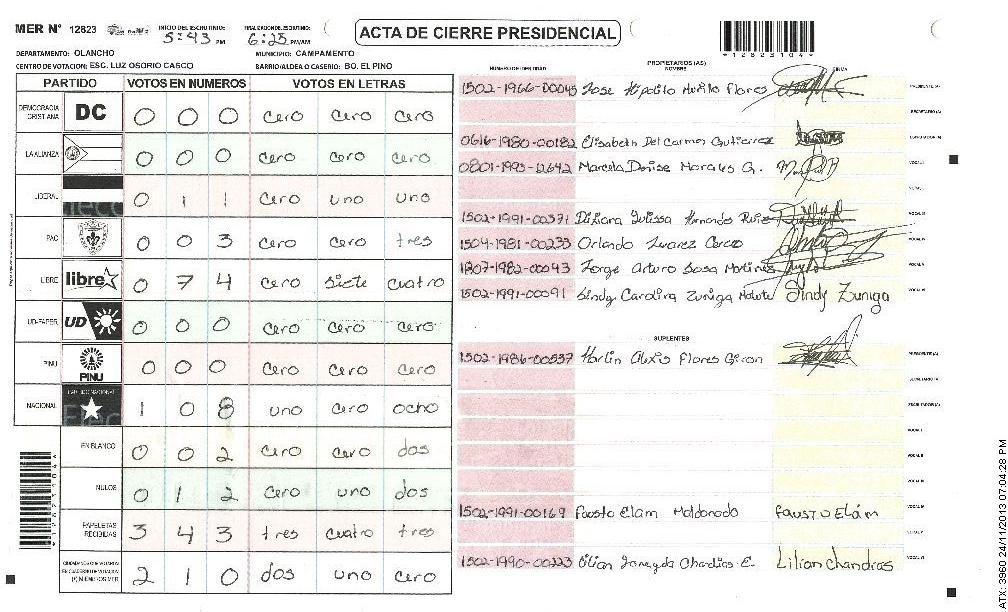 MER N° 12823 INICIO DEL ESCRUTINIO: 5:43 PM FINALIZACION DEL ESCRUTINIO: 6:25 PM/AM
ACTA DE CIERRE PRESIDENCIAL
*12823104*
DEPARTAMENTO: OLANCHO MUNICIPIO: CAMPAMENTO
CENTRO DE VOTACION: ESC. LUZ OSORIO CASCO BARRIO/ALDEA O CASERIO: BO. EL PINO
PARTIDO VOTOS EN NUMEROS VOTOS EN LETRAS
DEMOCRACIA CRISTIANA DC 0 0 0 cero cero cero
LA ALIANZA 0 0 0 cero cero cero
LIBERAL 0 1 1 cero uno uno
PAC 0 0 3 cero cero tres
LIBRE libre 0 7 4 cero siete cuatro
UD-FAPER UD 0 0 0 cero cero cero
PINU PINU 0 0 0 cero cero cero
NACIONAL 1 0 8 uno cero ocho
EN BLANCO 0 0 2 cero cero dos
NULOS 0 1 2 cero uno dos
PAPELETAS RECIBIDAS 3 4 3 tres cuatro tres
CIUDADANOS QUE VOTARON EN CUADERNO DE VOTACION (+) MIEMBROS MER 2 1 0 dos uno cero
PROPIETARIOS (AS)
NUMERO DE IDENTIDAD NOMBRE FIRMA
1502-1966-00045 Jose Hipolito Murillo Flores PRESIDENTE (A)
SECRETARIO (A)
0616-1980-00182 Elisabeth Del Carmen Gutierrez ESCRUTADOR (A)
0801-1993-12642 Marcela Denise Morales G. VOCAL I
VOCAL II
1502-1991-00371 VOCAL III
1504-1981-00233 Orlando VOCAL IV
1807-1982-00043 Jorge Arturo Sosa Martinez VOCAL V
1502-1991-00091 Sindy Carolina Zuniga Sindy Zuniga VOCAL VI
SUPLENTES
1502-1986-00537 Marlin Alexis Flores Giron PRESIDENTE (A)
SECRETARIO (A)
ESCRUTADOR (A)
VOCAL I
VOCAL II
VOCAL III
1502-1991-00169 Fausto Elam Maldonado Fausto Elám VOCAL IV
VOCAL V
1502-1990-00223 Lilian Chandias E. Lilian Chandias VOCAL VI
ATX: 3960 24/11/2013 07:04:28 PM